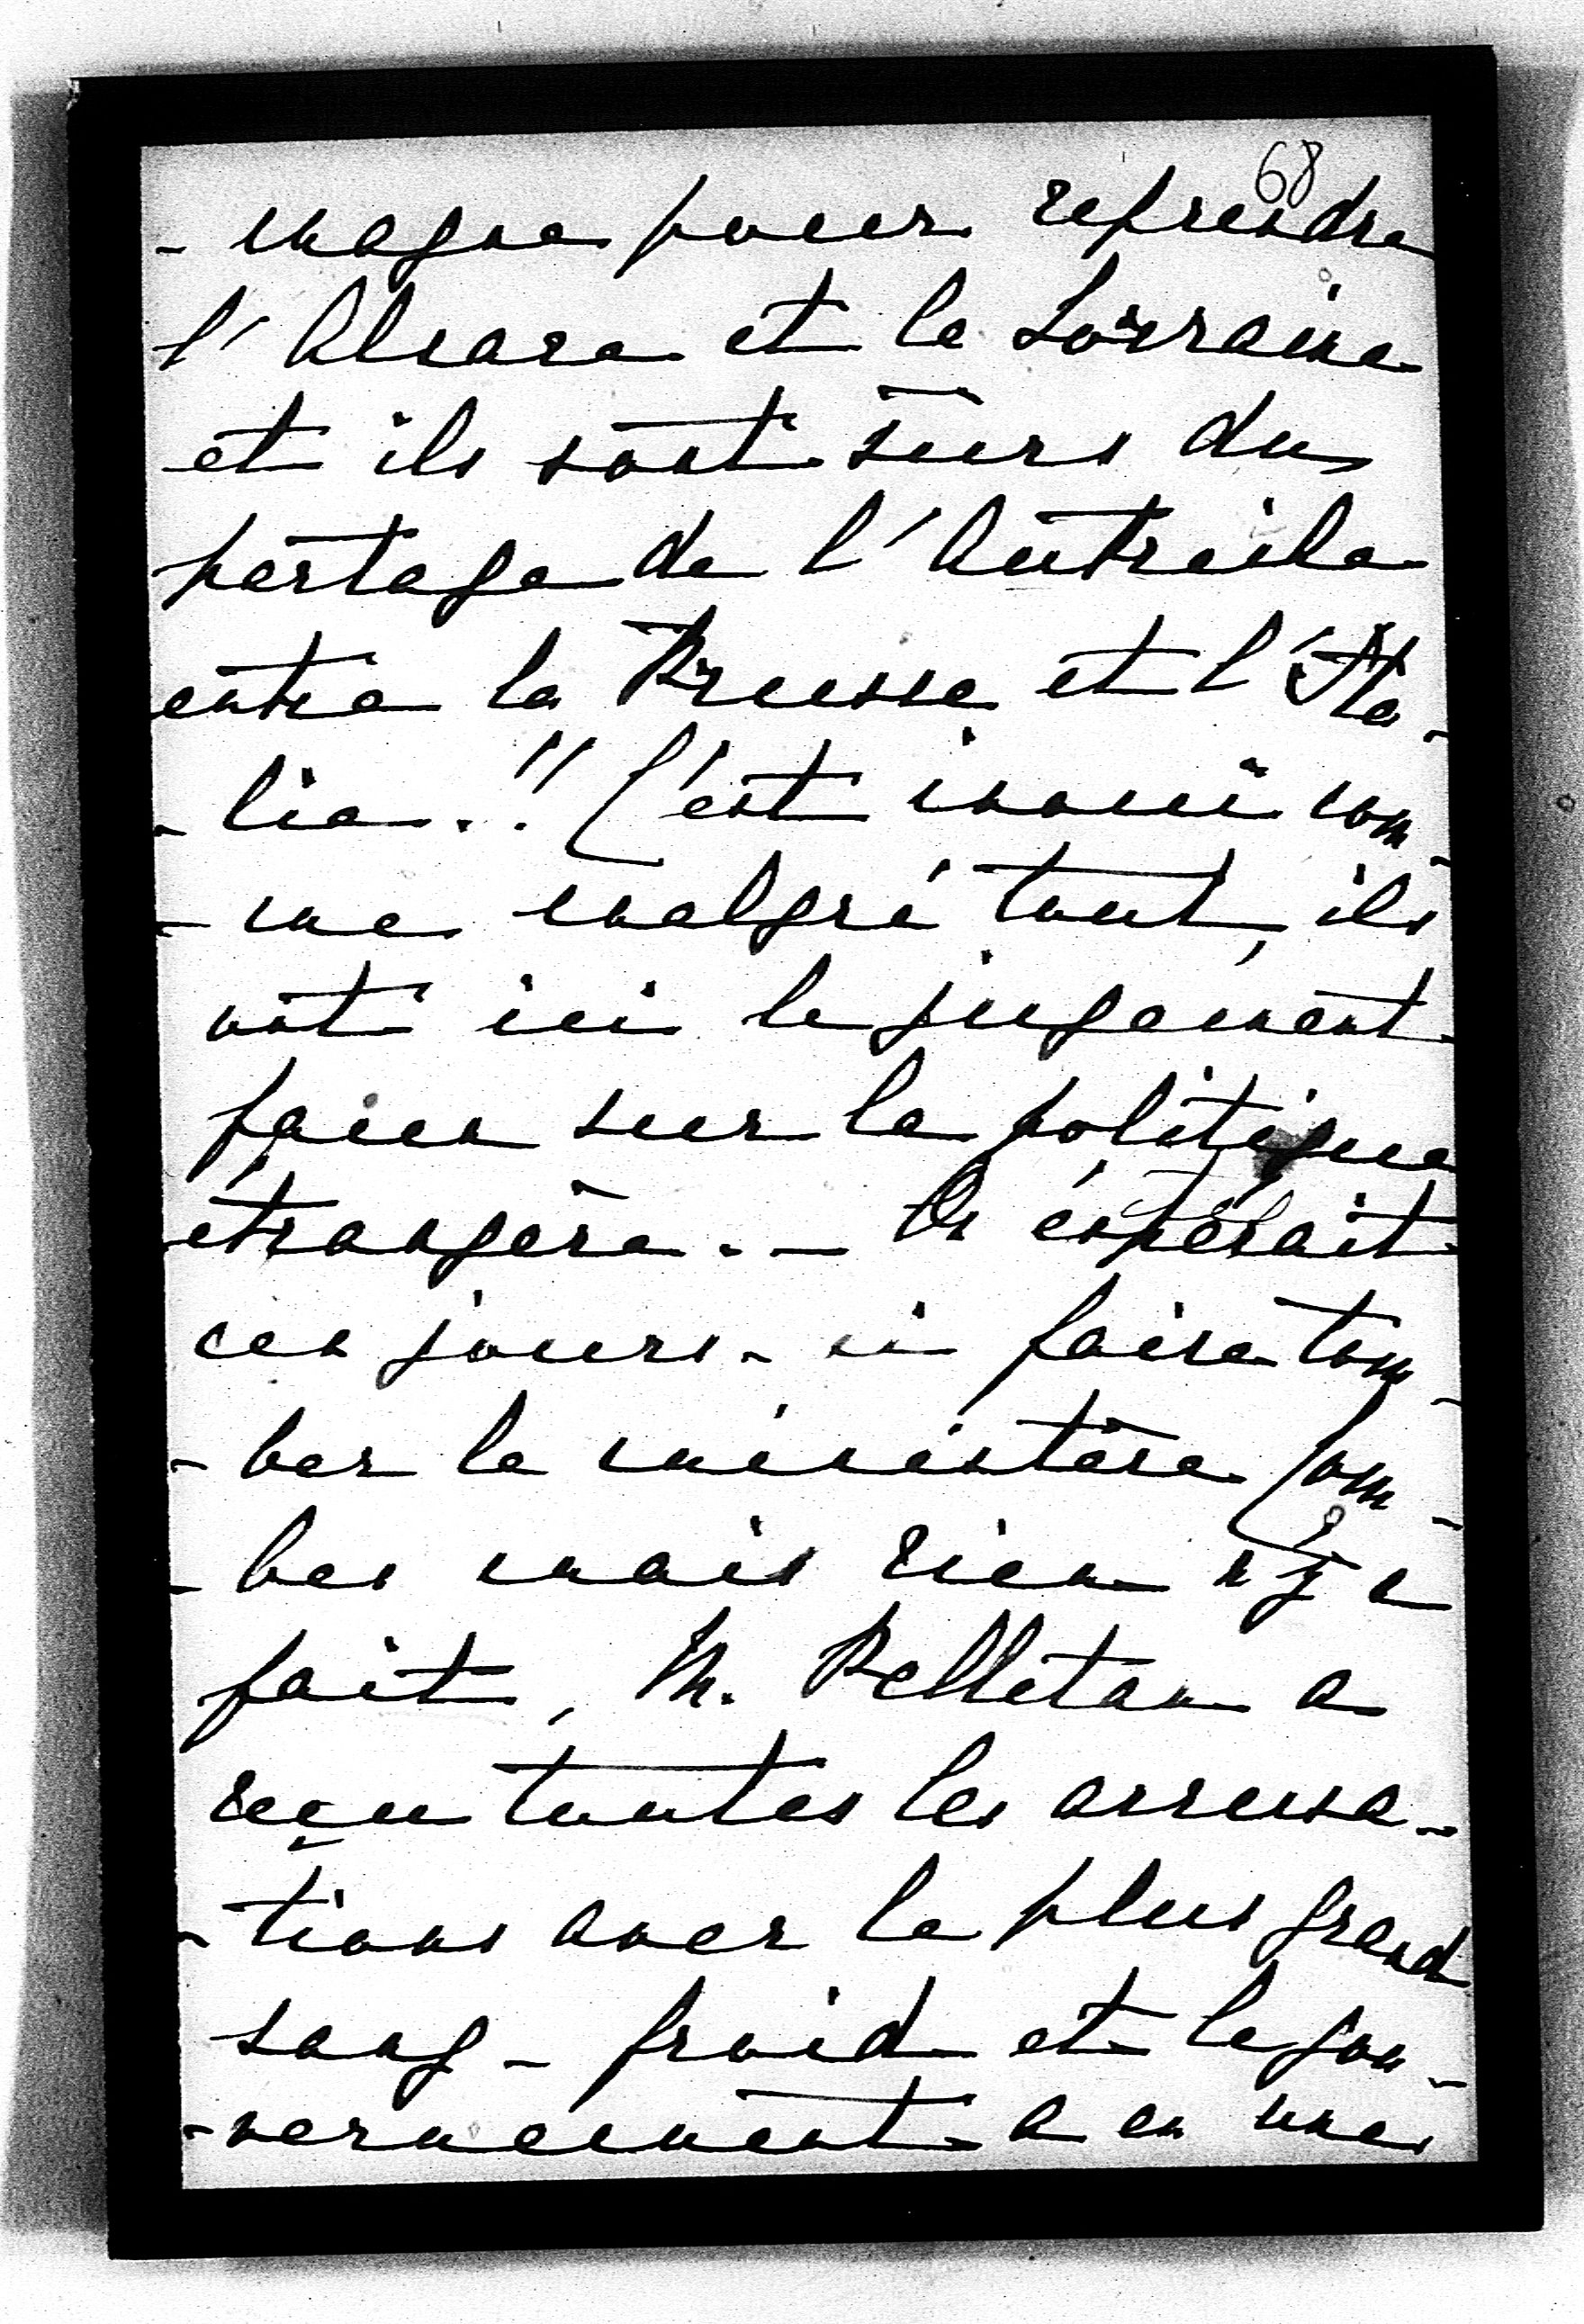 68
- magne pour reprendre
l'Alsace et la Lorraine
et ils sont sûrs du
partage de l'Autriche
entre la Prusse et l'Ita-
- lie..!! C'est inouï com-
- me malgré tout, ils
ont ici le jugement
faux sur la politique
étrangère. — On éspérait
ces jours-ci faire tom-
- ber le ministère Com-
- bes mais rien n'y a
fait, M. Pelletan a
reçu toutes les accusa-
- tions avec le plus grand
sang-froid et le gou-
- vernement a eu une